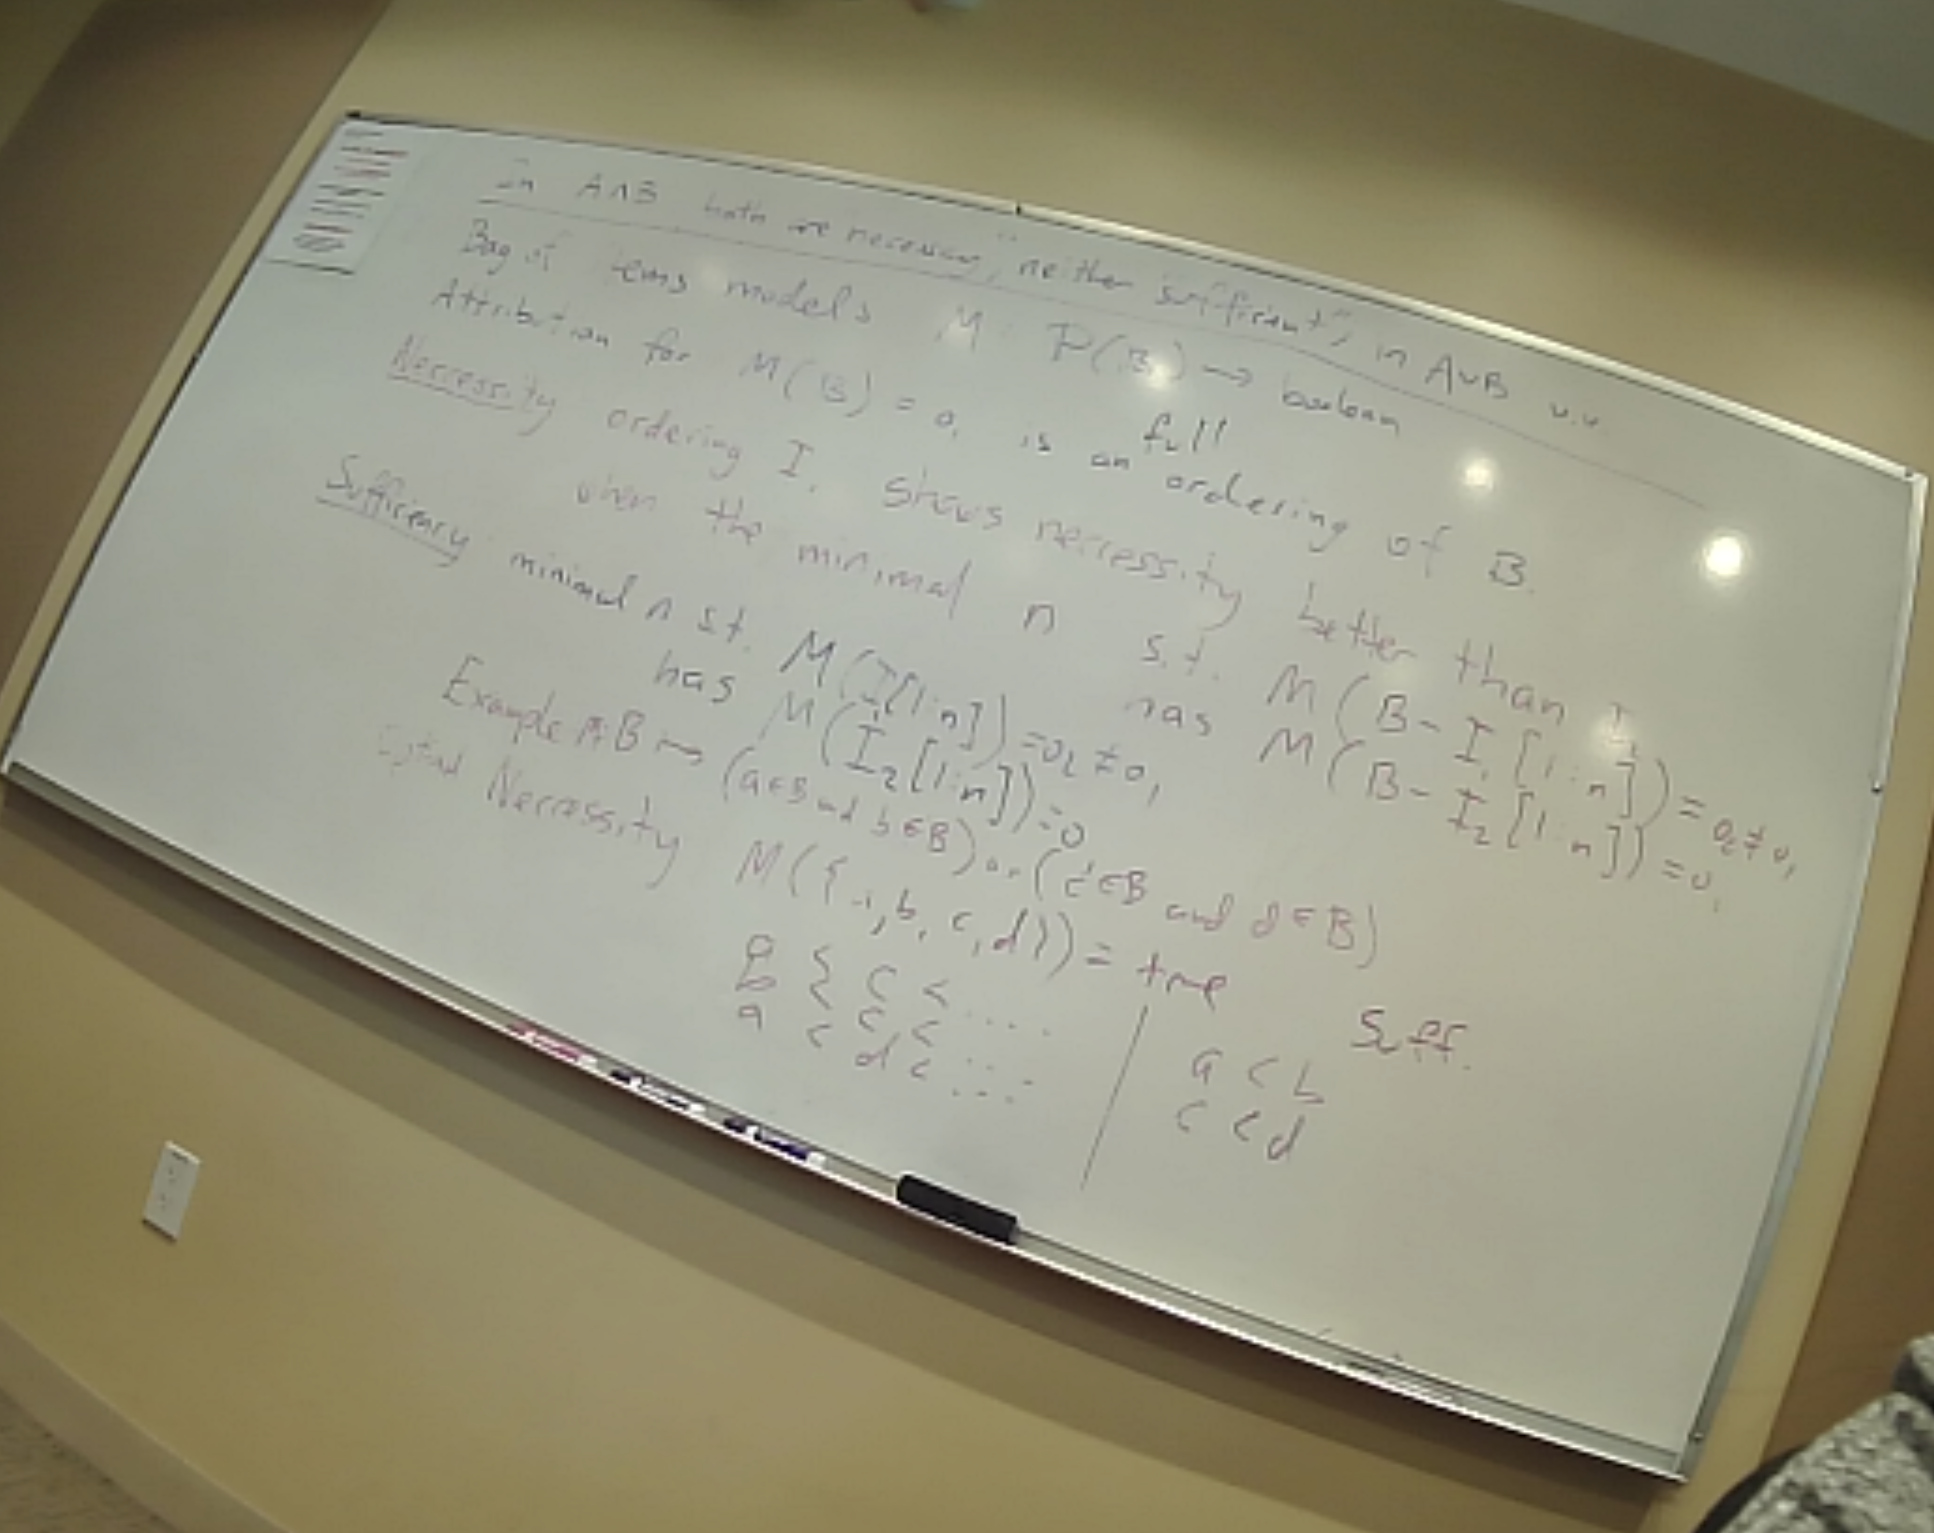 In A∧B both are "necessary", neither "sufficient", in A∨B v.v.
Bag of items models M: P(B) → boolean
Attribution for M(B) = o₁ is an full ordering of B.
Neccessity ordering I₁ shows neccessity better than I₂
when the minimal n s.t. M(B-I₁[1:n]) = o₂≠o₁
has M(B-I₂[1:n]) = o₁
Sufficiency minimal n s.t. M(I₁[1:n]) = o₂ ≠ o₁
has M(I₂[1:n]) = o
Example → (a∈B and b∈B) or (c∈B and d∈B)
Neccessity M({a, b, c, d}) = true
a < c < ....
b < c < ...
a < d < ...
Suff.
a < b
c < d